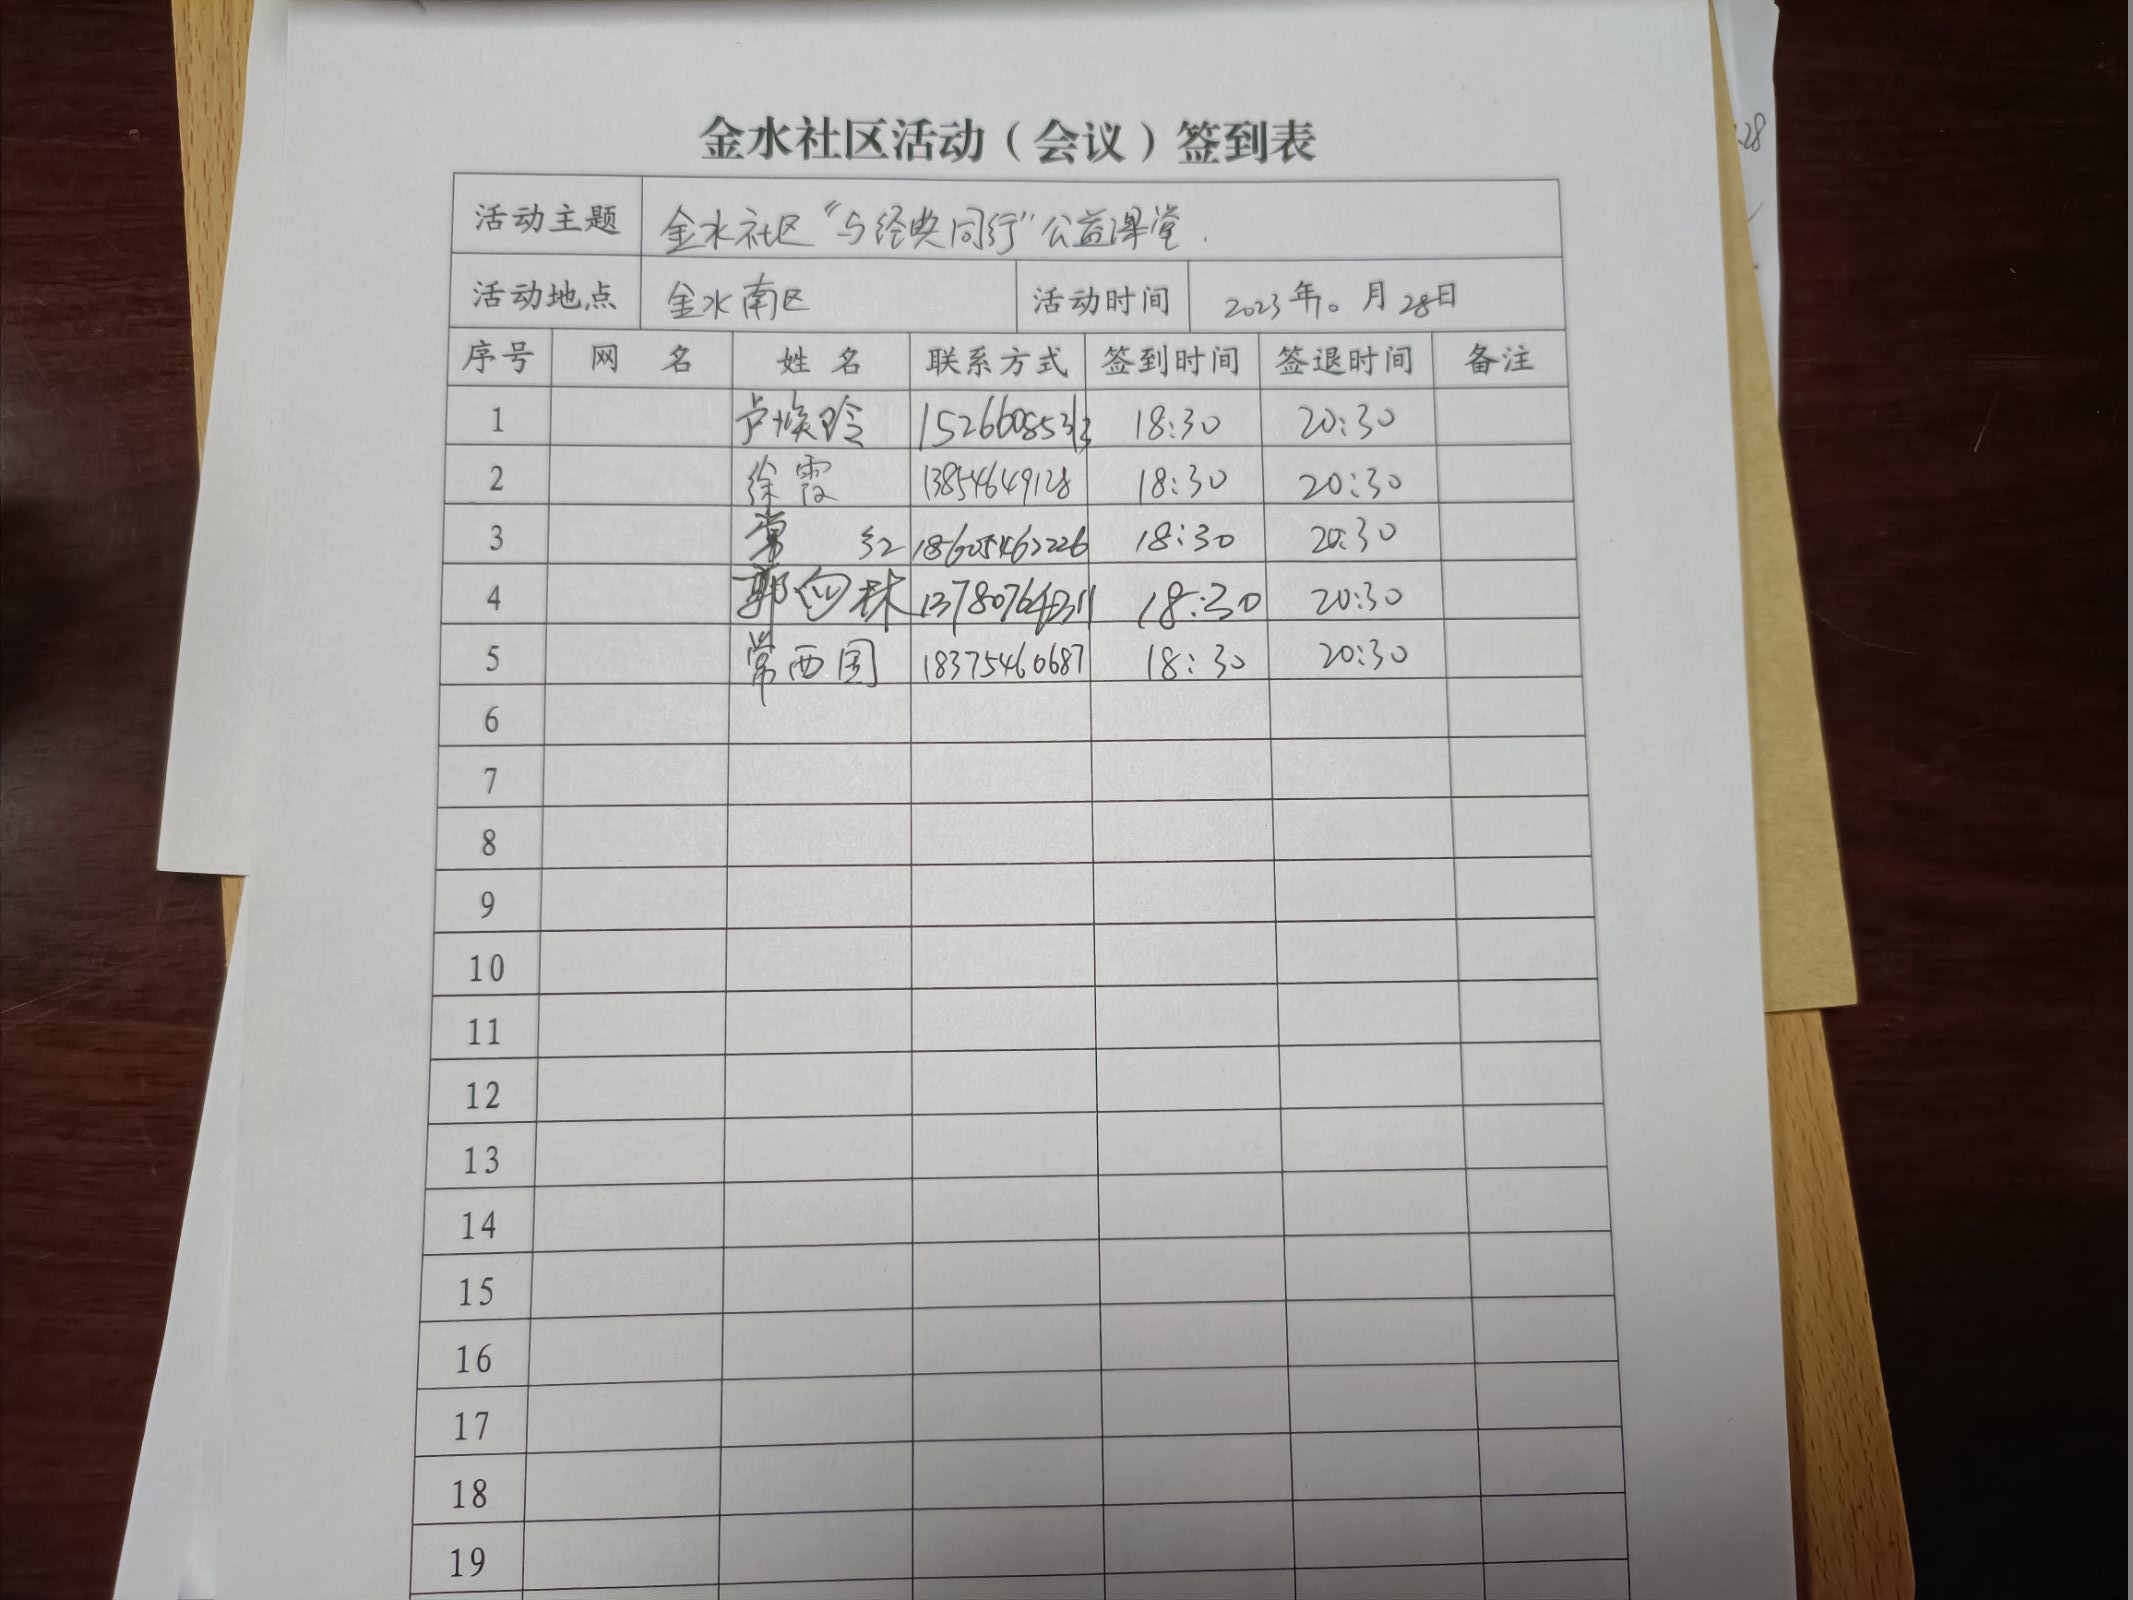 金水社区活动（会议）签到表
活动主题 金水社区“与经典同行”公益课堂.
活动地点 金水南区 活动时间 2023年10月28日
序号 网 名 姓 名 联系方式 签到时间 签退时间 备注
1 卢焕玲 15266085313 18:30 20:30
2 徐霞 13854649128 18:30 20:30
3 常 红 18605462226 18:30 20:30
4 郭 林 13780764311 18:30 20:30
5 常西国 18375460687 18:30 20:30
6
7
8
9
10
11
12
13
14
15
16
17
18
19
28